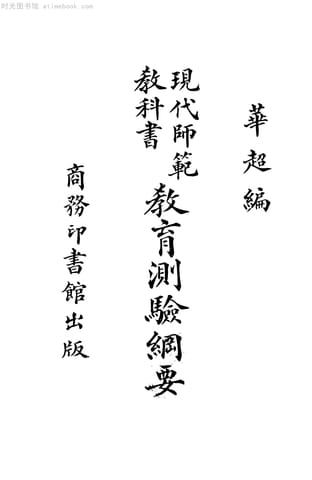 时光图书馆 etimebook.com
華超編
現代師範
教科書
教育測驗綱要
商務印書館出版